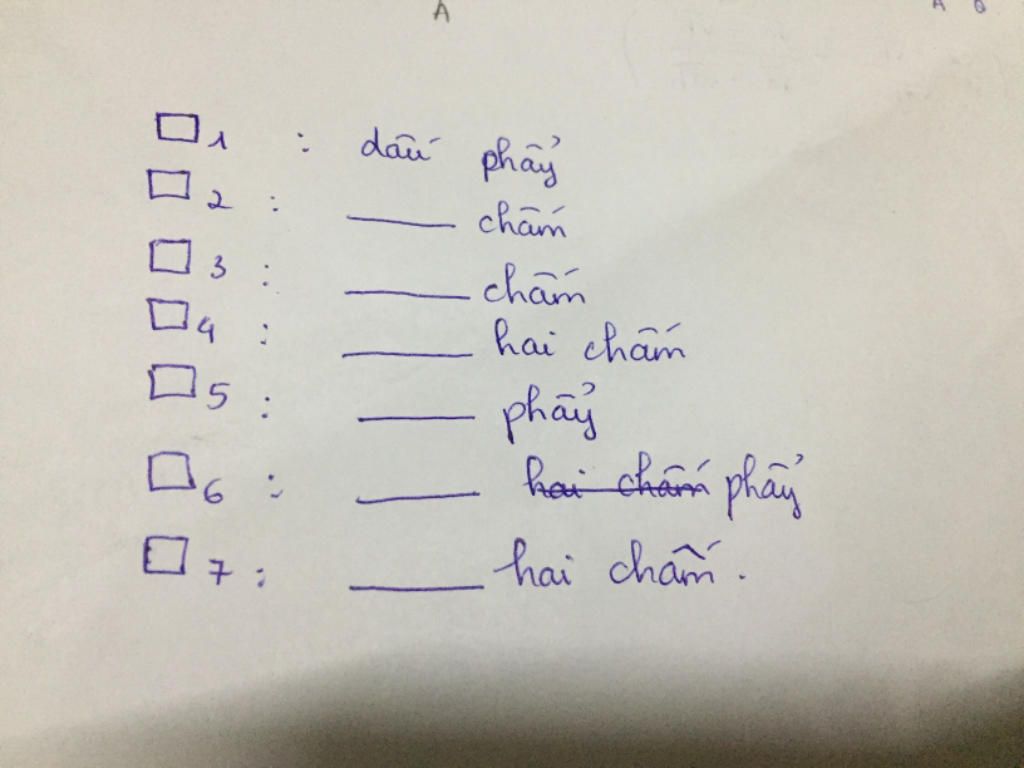 A A B
□1 : dấu phẩy
□2 : ____ chấm
□3 : ____ chấm
□4 : ____ hai chấm
□5 : ____ phẩy
□6 : ____ ~~hai chấm~~ phẩy
□7 : ____ hai chấm.